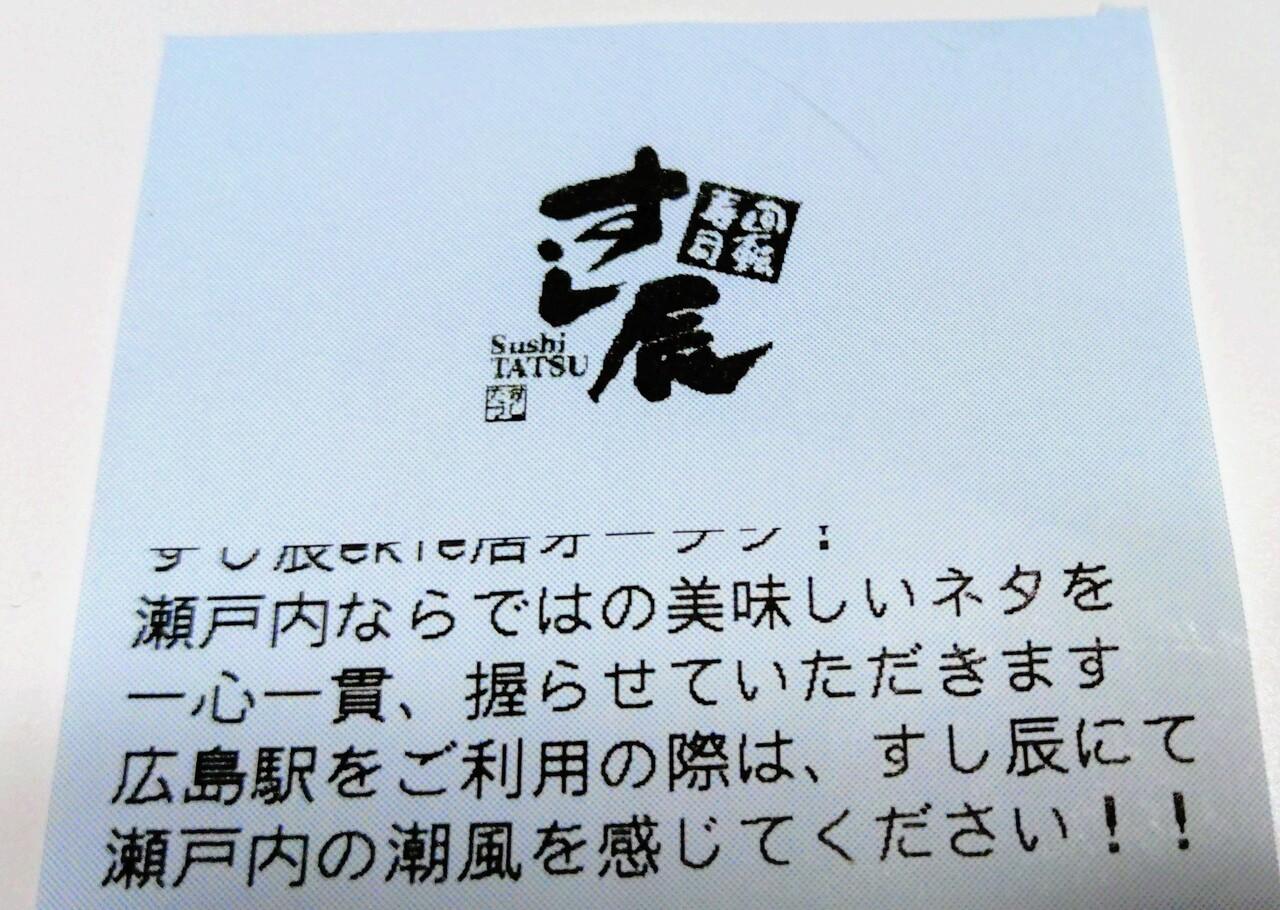 すし辰
回転
寿司
Sushi
TATSU
すし辰ekie店オープン！
瀬戸内ならではの美味しいネタを
一心一貫、握らせていただきます
広島駅をご利用の際は、すし辰にて
瀬戸内の潮風を感じてください！！